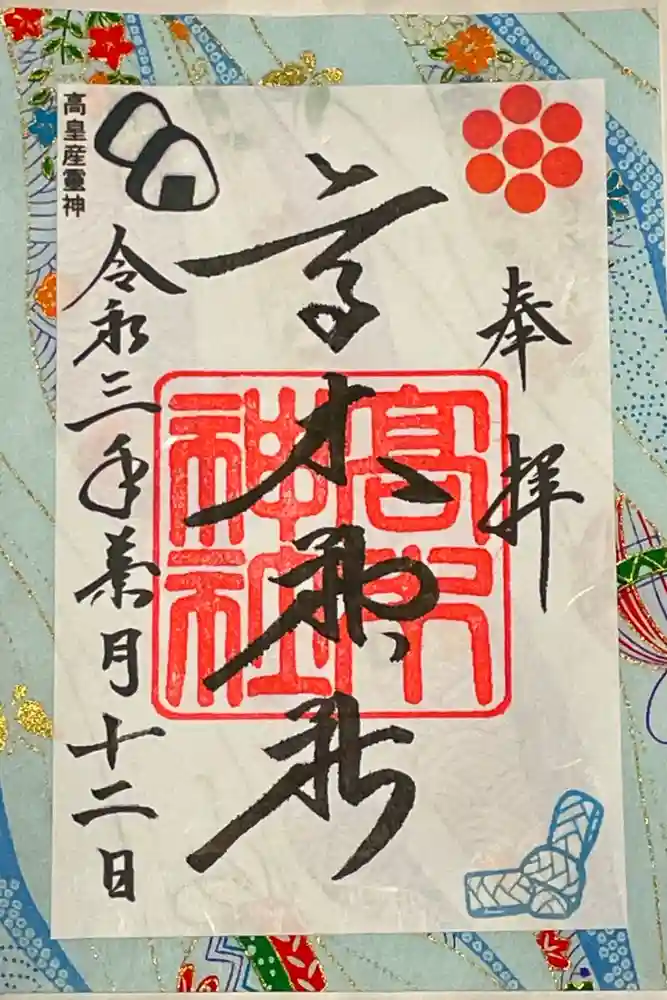 奉拝
高木神社
高木神社
令和三年葉月十二日
高皇産靈神